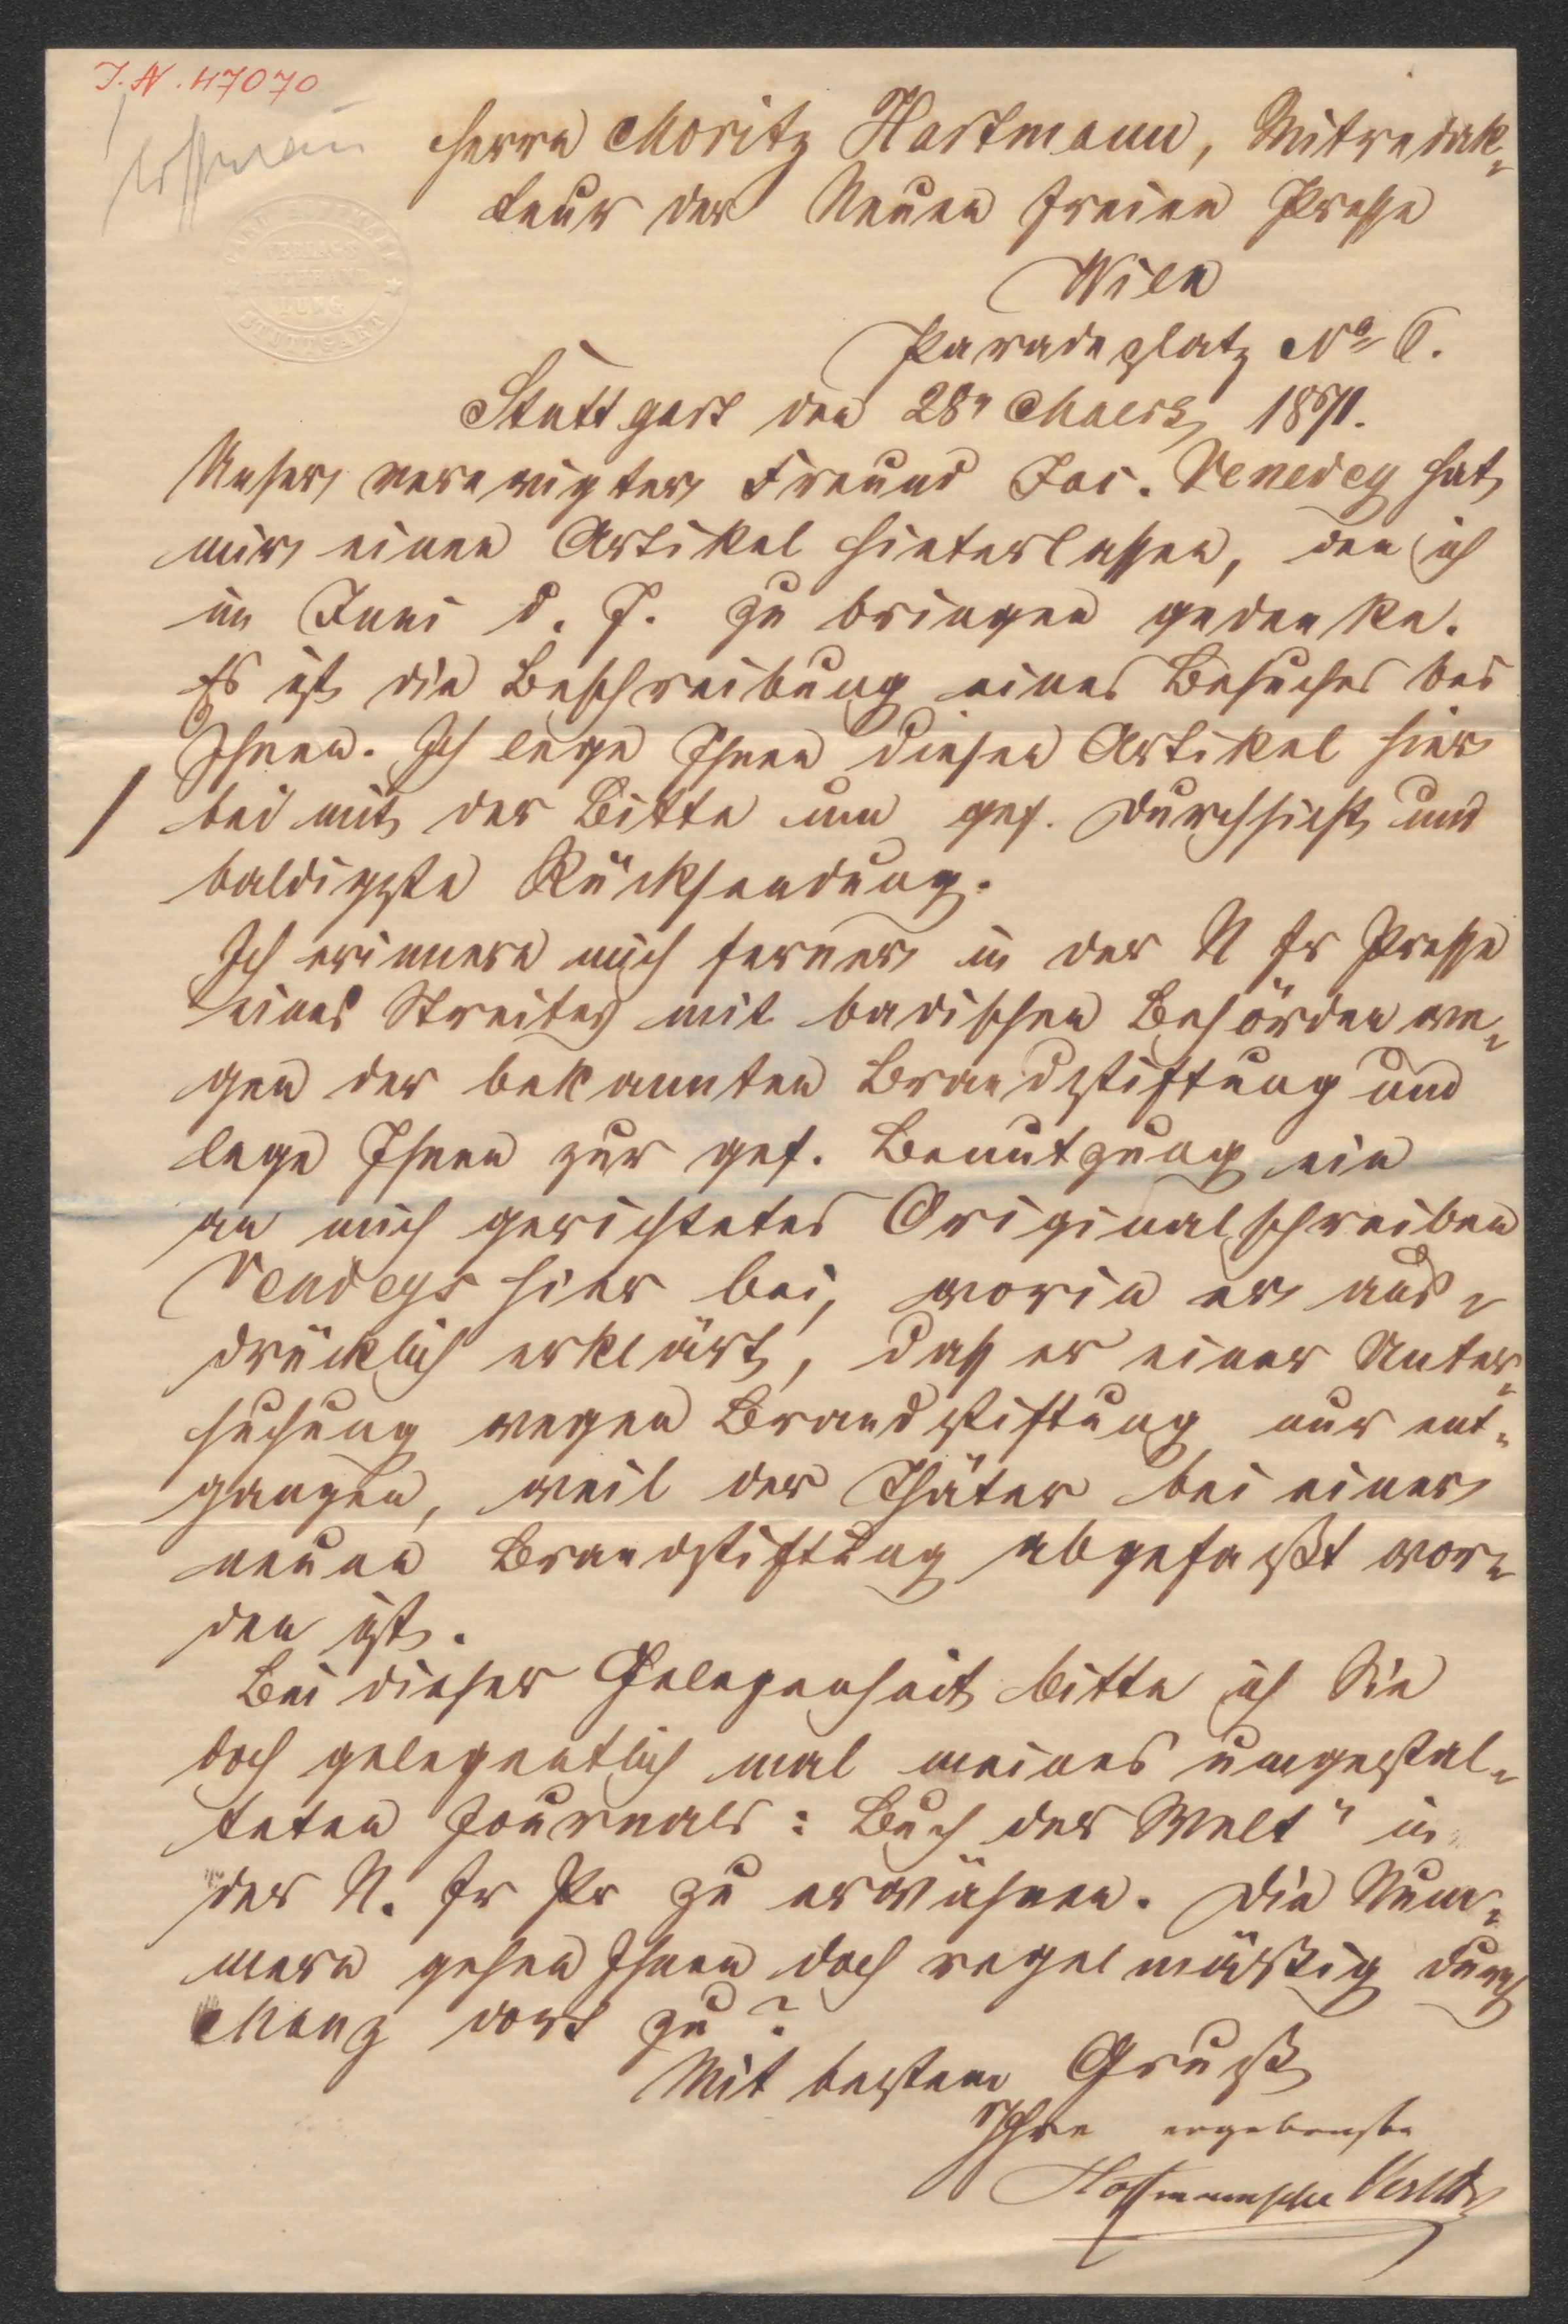 J.N. 47070
Hoffmann
Herrn Moritz Hartmann, Mitredak-
teur der Neuen freien Presse
Wien
Paradeplatz No 6.
VERLAGS
BUCHHAND
LUNG
STUTTGART
Stuttgart den 28n Maerz 1871.
Unser verewigter Freund Jac. Venedey hat
mir einen Artikel hinterlassen, den ich
im Juni d. J. zu bringen gedenke.
Es ist die Beschreibung eines Besuches bei
Ihnen. Ich lege Ihnen diesen Artikel hier
bei mit der Bitte um gef. Durchsicht und
baldigste Rücksendung.
Ich erinnere mich ferner in der N fr Presse
eines Streites mit badischen Behörden we-
gen der bekannten Brandstiftung und
lege Ihnen zur gef. Benutzung ein
an mich gerichtetes Originalschreiben
Vendeys hier bei, worin er aus-
drücklich erklärt, daß er einer Unter-
suchung wegen Brandstiftung nur ent-
gangen, weil der Thäter bei einer
neuen Brandstiftung abgefaßt wor-
den ist.
Bei dieser Gelegenheit bitte ich Sie
doch gelegentlich mal meines umgestal-
teten Journals: Buch der Welt" in
der N. fr Pr zu erwähnen. Die Num-
mern gehen Ihnen doch regelmäßig durch
Manz dort zu?
Mit bestem Gruß
Ihre ergebenste
Hoffmannsche